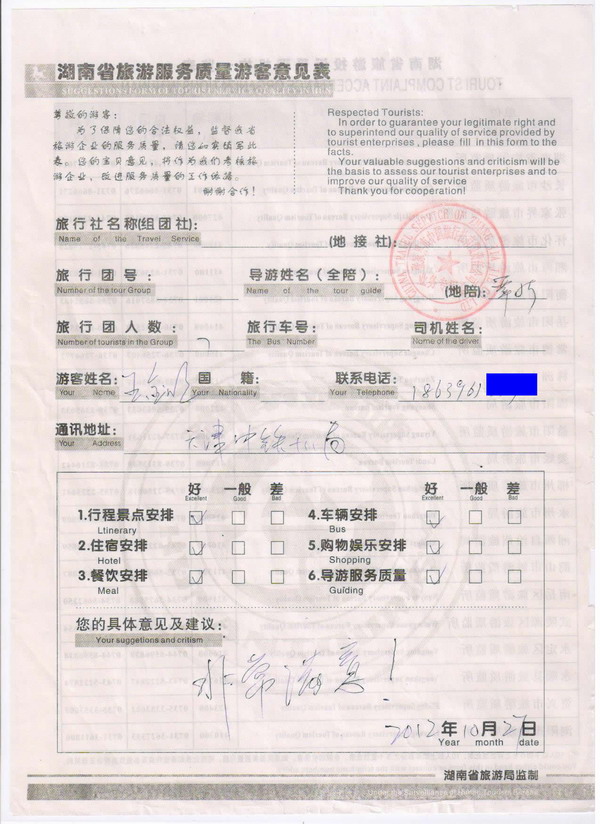 湖南省旅游服务质量游客意见表
SUGGESTIONS FORM OF TOURIST SERVICE QUALITY IN HUN
尊敬的游客:
为了保障您的合法权益，监督我省
旅游企业的服务质量，请您如实填写此
表。您的宝贵意见，将作为我们考核旅
游企业、改进服务质量的工作依据。
谢谢合作!
Respected Tourists:
In order to guarantee your legitimate right and
to superintend our quality of service provided by
tourist enterprises , please fill in this form to the
facts.
Your valuable suggestions and criticism will be
the basis to assess our tourist enterprises and to
improve our quality of service
Thank you for cooperation!
旅行社名称(组团社): (地接社):
Name of the Travel Service
旅行团号: 导游姓名(全陪): (地陪):
Number of the tour Group Name of the tour guide
旅行团人数: 旅行车号: 司机姓名:
Number of tourists in the Group 7 The Bus Number Name of the driver
游客姓名: 国籍: 联系电话: 1863961
Your Name Your Nationality Your Telephone
通讯地址: 天津中铁十八局
Your Address
好 一般 差 好 一般 差
Excellent Good Bad Excellent Good Bad
1.行程景点安排 4.车辆安排
Ltinerary Bus
2.住宿安排 5.购物娱乐安排
Hotel Shopping
3.餐饮安排 6.导游服务质量
Meal Guiding
您的具体意见及建议:
Your suggetions and critism
非常满意!
2012年10月27日
Year month date
湖南省旅游局监制